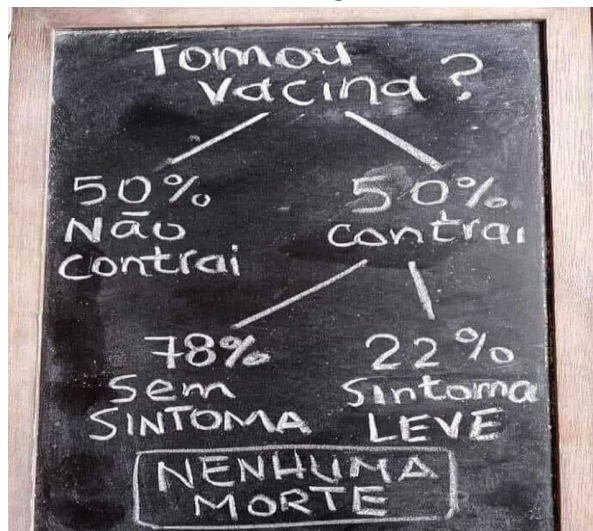 Tomou
vacina?
50%
Não
contrai
50%
contrai
78%
sem
SINTOMA
22%
sintoma
LEVE
NENHUMA
MORTE